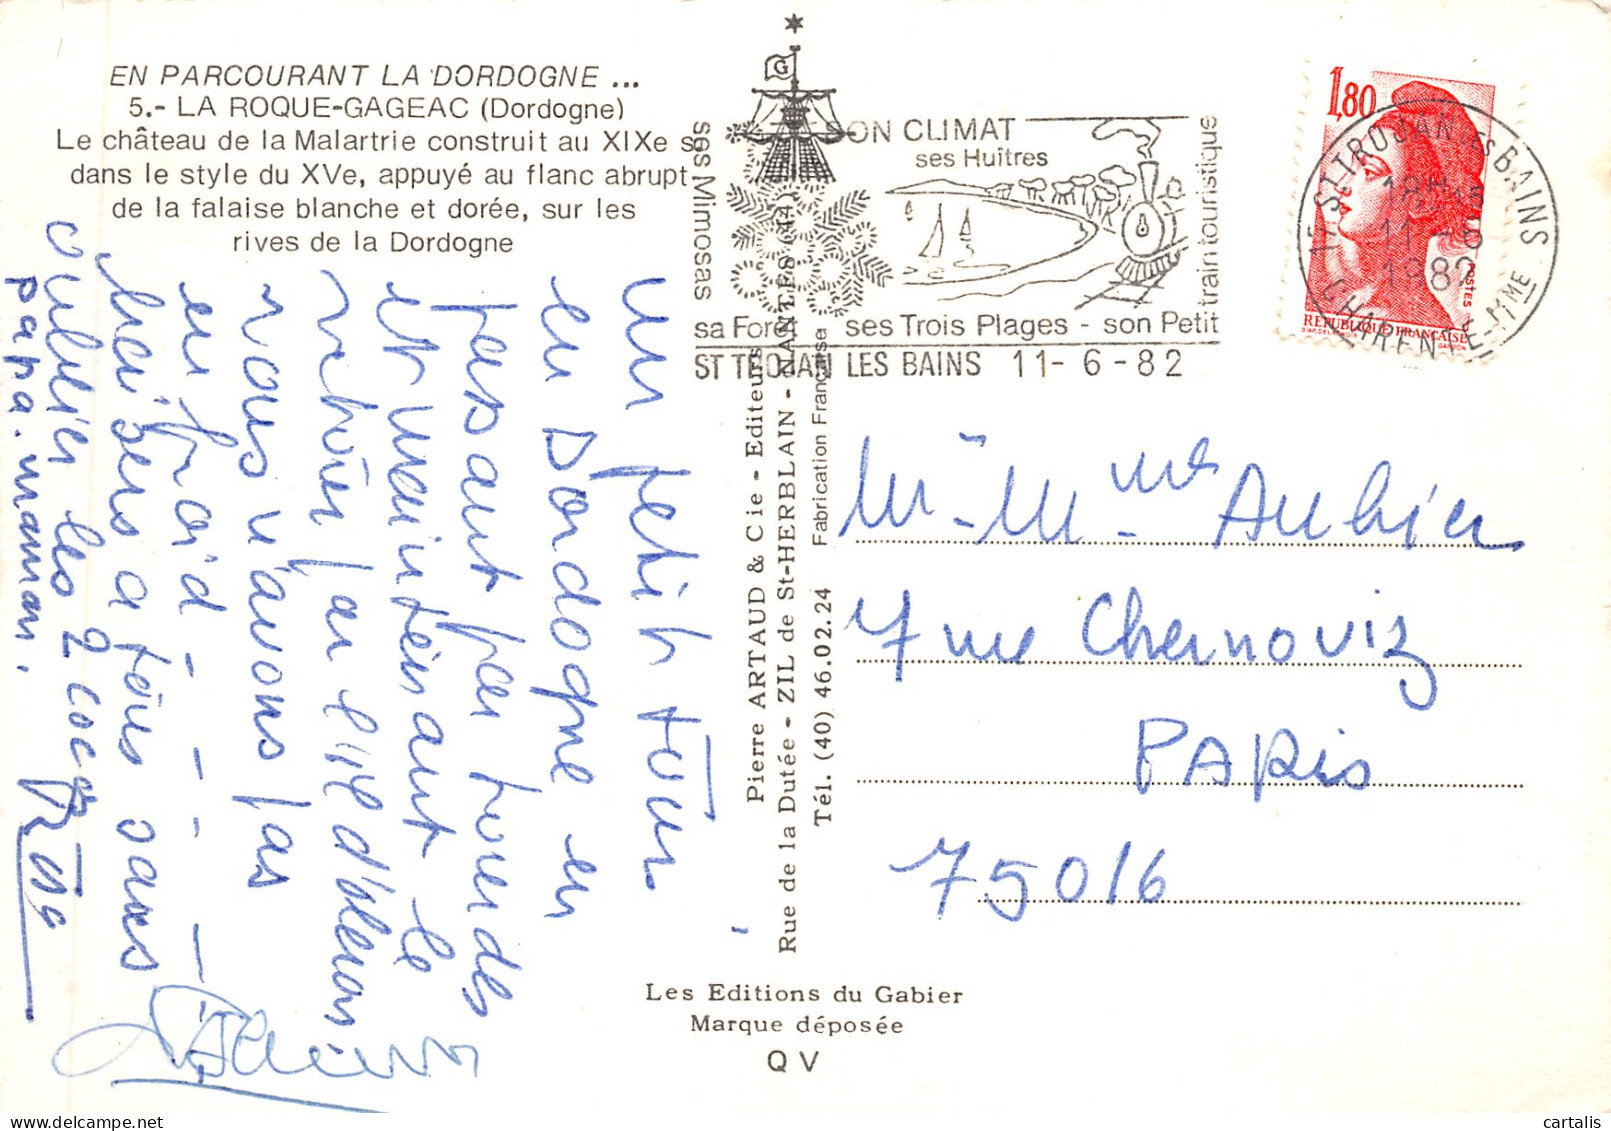 EN PARCOURANT LA DORDOGNE ...
5.- LA ROQUE-GAGEAC (Dordogne)
Le château de la Malartrie construit au XIXe s
dans le style du XVe, appuyé au flanc abrupt
de la falaise blanche et dorée, sur les
rives de la Dordogne
un petit tour
en Dordogne en
passant par tours des
et maintenant le
par l'île d'oleron
nous n'avons pas
eu froid - - - -
baisers a tous sans
oublier les 2
papa. maman.
SON CLIMAT
ses Huîtres
ses Mimosas
train touristique
sa Forêt ses Trois Plages - son Petit
ST TROJAN LES BAINS 11- 6 - 82
G
1,80
POSTES
REPUBLIQUE FRANÇAISE
17 ST TROJAN LES BAINS
18H15
11 - 6
1982
CHARENTE-MME
Pierre ARTAUD & Cie - Editeurs
Rue de la Dutée - ZIL de St-HERBLAIN - NANTES (44)
Tél. (40) 46.02.24 Fabrication Française
Mr - Mme Aubier
7 rue Chernoviz
PARis
75016
Les Editions du Gabier
Marque déposée
QV
cartalis